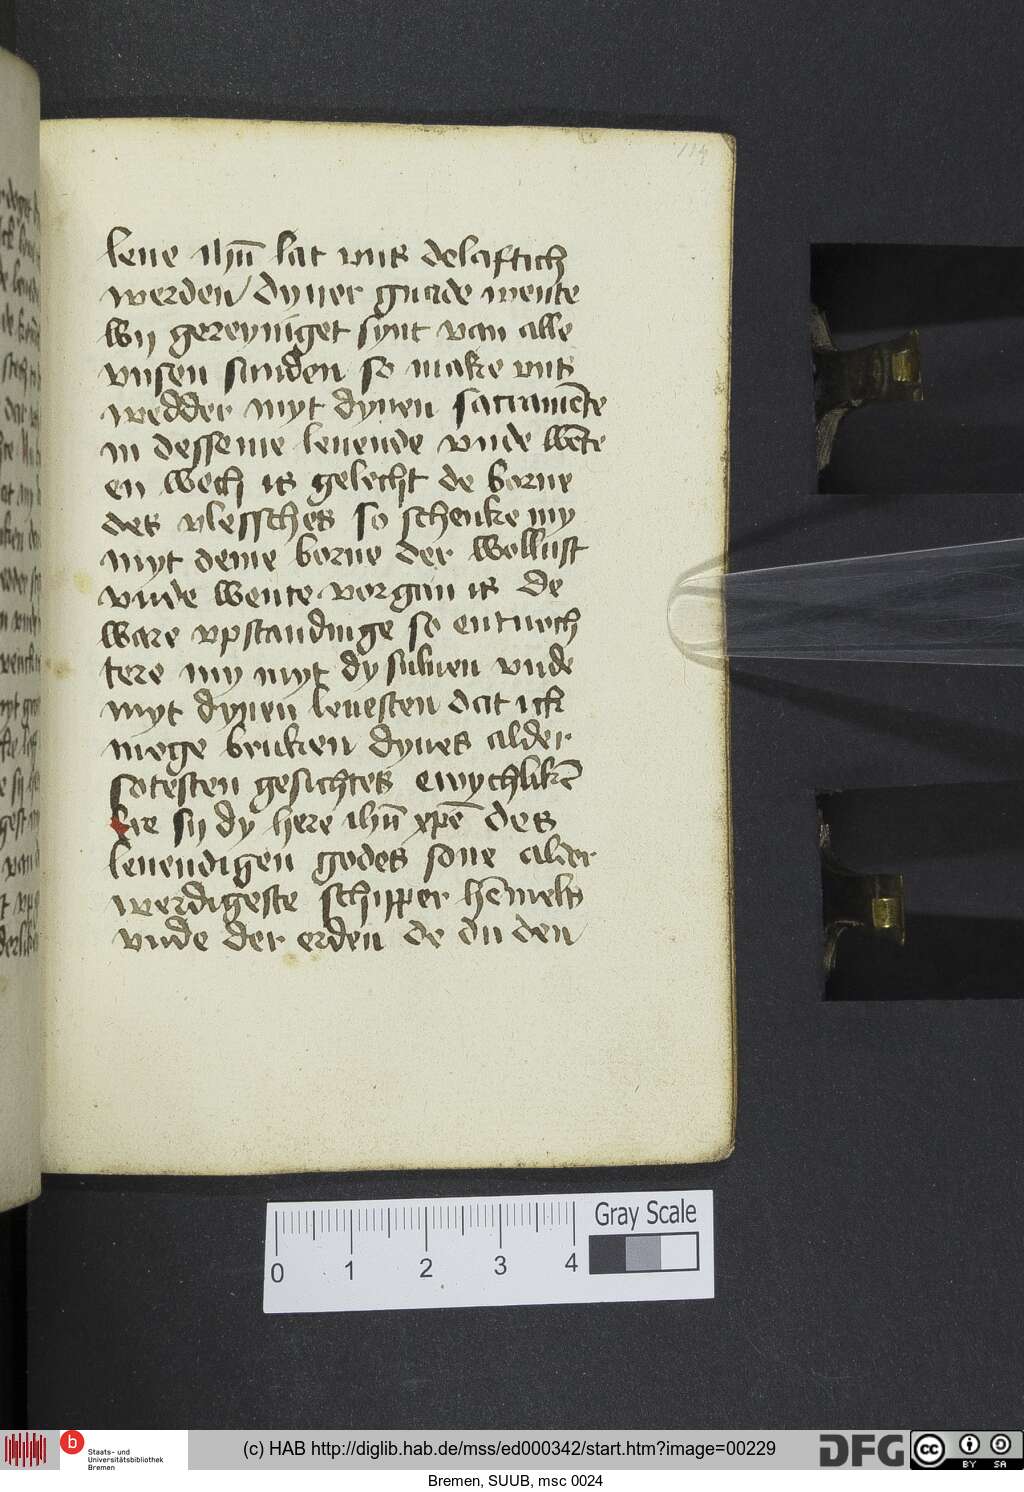 114
leue ihū lat vns delaftich
werden dyner gnade wente
wy gereyniget synt van alle
vnsen sunden so make vns
wedder myt dynen sacramēte
in desseme leuende vnde wēte
en wech is gelecht de borne
des vlessches so schenke my
myt deme borne der wollust
vnde wente vorgan is de
ware vpstandinge so entuech
tere my myt dy suluen vnde
myt dynen leuesten dat ick
moge bruken dynes alder
sotesten gesichtes ewychlikē
Ere sy dy here ihū xpē des
leuendigen godes sone alder
werdigeste schipper hēmels
vnde der erden de du den
0 1 2 3 4 Gray Scale
b Staats- und
Universitätsbibliothek
Bremen
(c) HAB http://diglib.hab.de/mss/ed000342/start.htm?image=00229
DFG cc BY SA
Bremen, SUUB, msc 0024